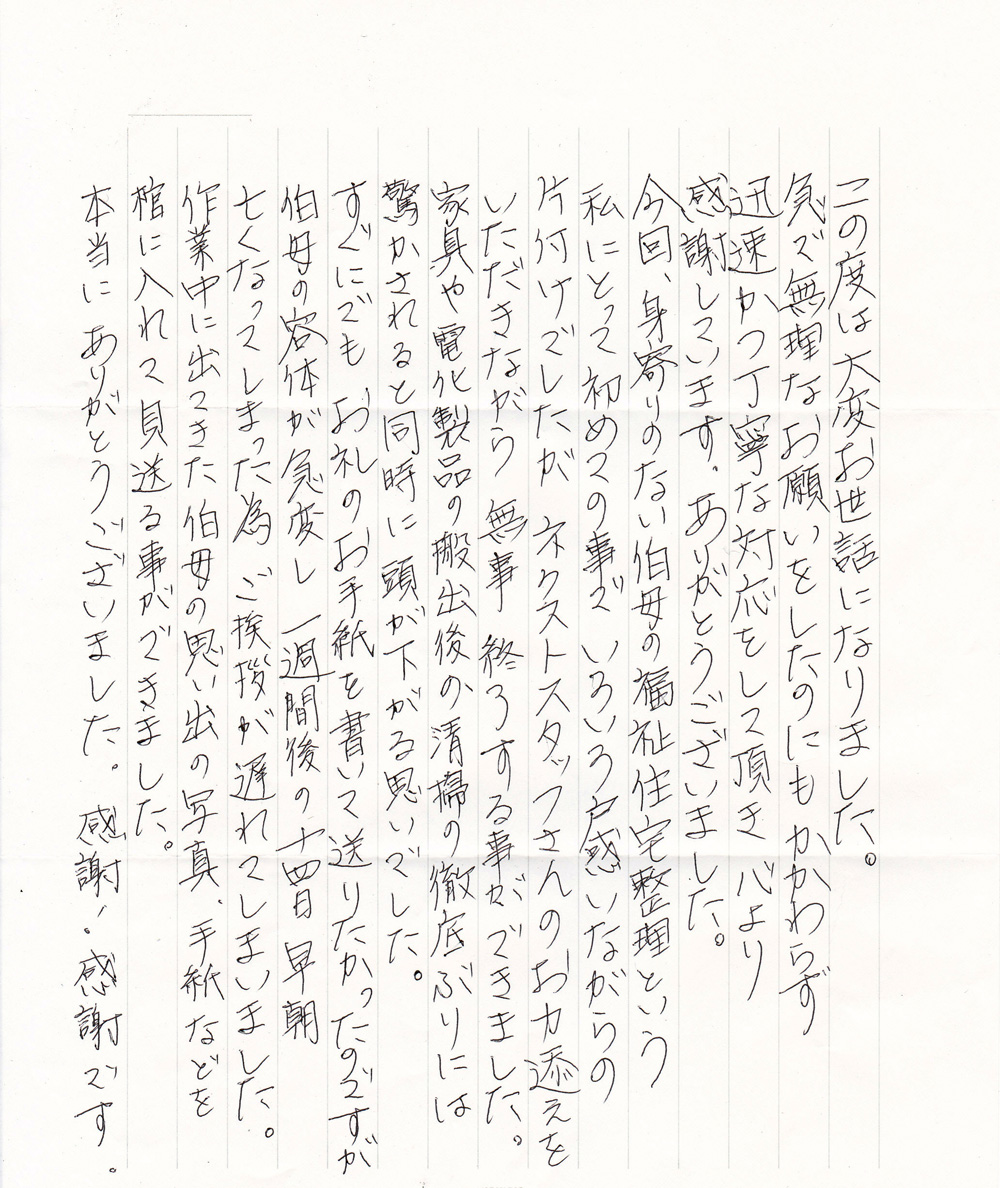 この度は大変お世話になりました。
急で無理なお願いをしたのにもかかわらず
迅速かつ丁寧な対応をして頂き 心より
感謝しています。ありがとうございました。
今回、身寄りのない伯母の福祉住宅整理という
私にとって初めての事で いろいろ戸惑いながらの
片付けでしたが ネクストスタッフさんのお力添えを
いただきながら 無事 終ろする事ができました。
家具や電化製品の搬出後の清掃の徹底ぶりには
驚かされると同時に 頭が下がる思いでした。
すぐにでも お礼のお手紙を書いて送りたかったのですが
伯母の容体が急変し 一週間後の十四日 早朝
亡くなってしまった為 ご挨拶が遅れてしまいました。
作業中に出てきた伯母の思い出の写真、手紙などを
棺に入れて見送る事ができました。
本当に ありがとうございました。 感謝!感謝です。